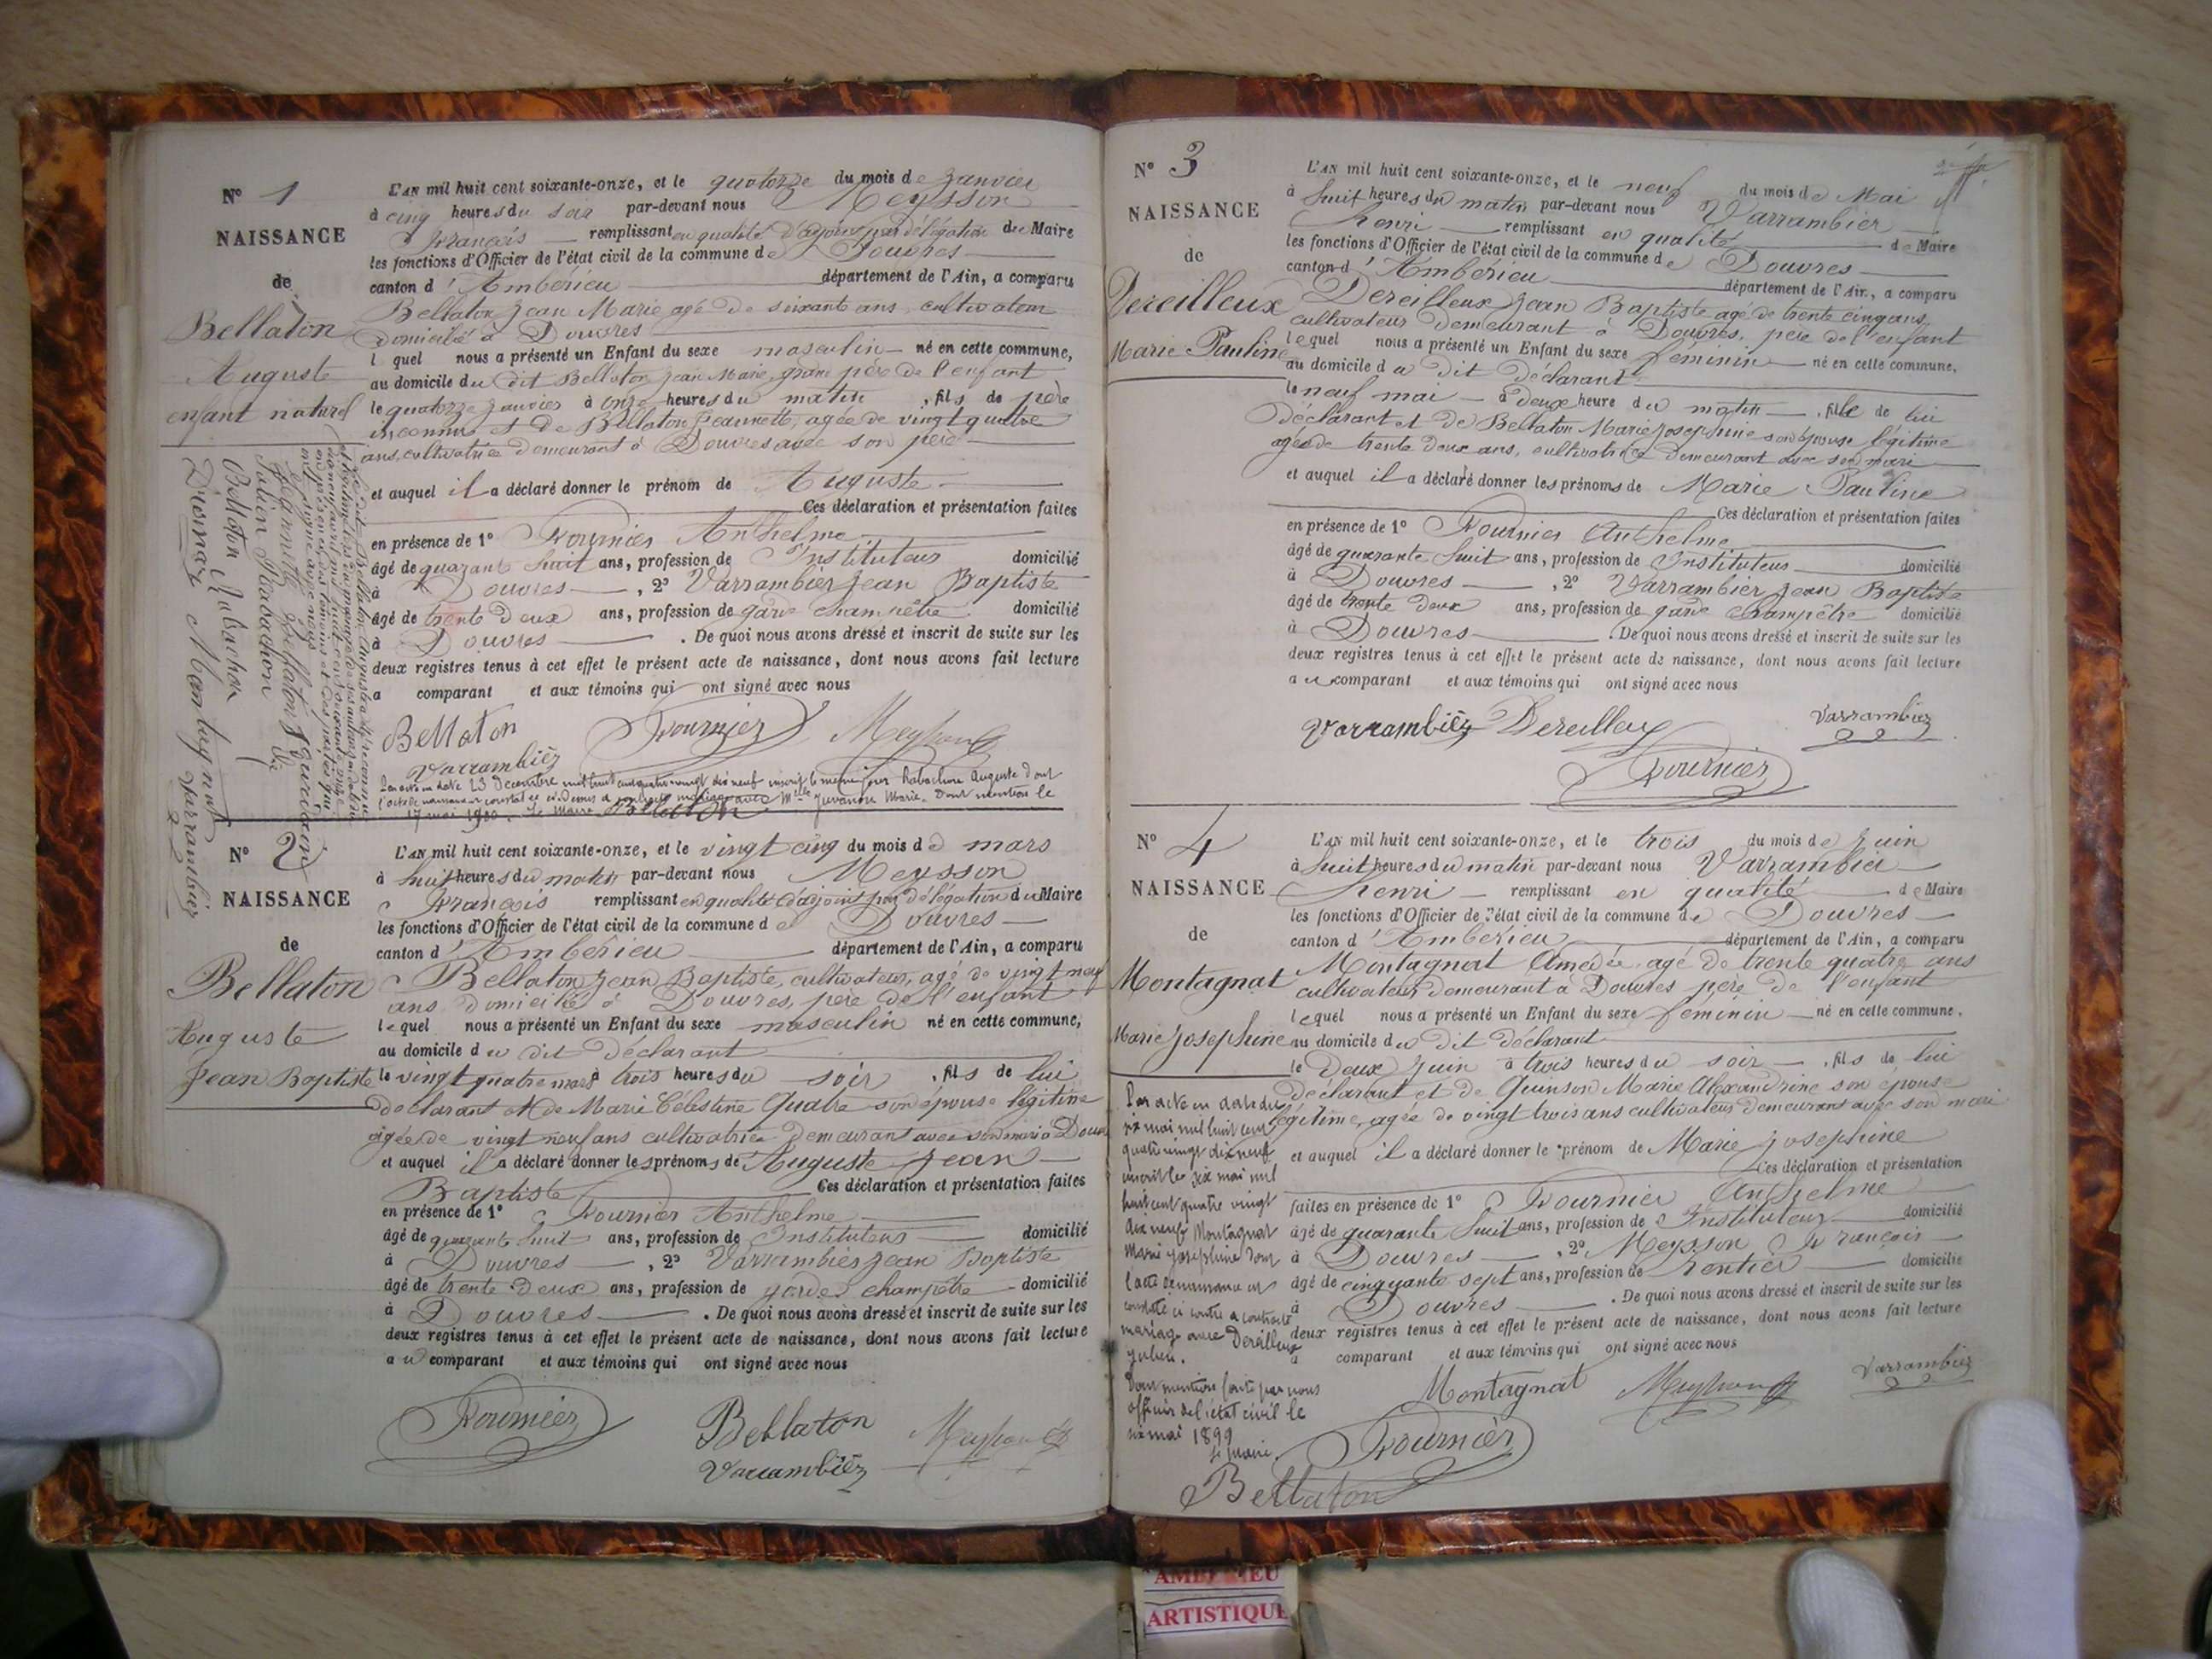 N° 1
NAISSANCE
de
Bellaton
Auguste
enfant naturel
L'AN mil huit cent soixante-onze, et le quatorze du mois de Janvier
à cinq heures du soir par-devant nous Meysson
François remplissant en qualité d'adjoint par délégation du Maire
les fonctions d'Officier de l'état civil de la commune de Douvres
canton d'Ambérieu département de l'Ain, a comparu
Bellaton Jean Marie agé de soixante ans cultivateur
domicilié à Douvres
l quel nous a présenté un Enfant du sexe masculin né en cette commune,
au domicile du dit Bellaton Jean Marie, grand père de l'enfant
le quatorze Janvier à onze heures du matin, fils de père
inconnu et de Bellaton Jeannette, agée de vingt quatre
ans, cultivatrice demeurant à Douvres avec son père
et auquel il a déclaré donner le prénom de Auguste
Ces déclaration et présentation faites
en présence de 1° Fournier Anthelme
âgé de quarante huit ans, profession de Instituteur domicilié
à Douvres, 2° Varrambier Jean Baptiste
âgé de trente deux ans, profession de garde champêtre domicilié
à Douvres. De quoi nous avons dressé et inscrit de suite sur les
deux registres tenus à cet effet le présent acte de naissance, dont nous avons fait lecture
a comparant et aux témoins qui ont signé avec nous
Bellaton Fournier Meysson
Varrambier
Jeannette Bellaton
Julien Rabachon
Bellaton Rabachon
Montagnat
Varrambier
23 Décembre mil huit cent quatre vingt dix neuf inscrit le même jour Rabachon Auguste dont
l'acte de naissance est constaté ci-dessus a contracté mariage avec Mlle Juvanon Marie. Dont mention le
17 mai 1900. Le Maire Bellaton
N° 2
NAISSANCE
de
Bellaton
Auguste
Jean Baptiste
L'AN mil huit cent soixante-onze, et le vingt cinq du mois de mars
à huit heures du matin par-devant nous Meysson
François remplissant en qualité d'adjoint par délégation du Maire
les fonctions d'Officier de l'état civil de la commune de Douvres
canton d'Ambérieu département de l'Ain, a comparu
Bellaton Jean Baptiste, cultivateur, agé de vingt neuf
ans domicilié à Douvres, père de l'enfant
lequel nous a présenté un Enfant du sexe masculin né en cette commune,
au domicile du dit déclarant
le vingt quatre mars à trois heures du soir, fils de lui
déclarant et de Marie Célestine Quatre son épouse légitime
agée de vingt neuf ans cultivatrice demeurant avec son mari à Douvres
et auquel il a déclaré donner les prénoms de Auguste Jean
Baptiste Ces déclaration et présentation faites
en présence de 1° Fournier Anthelme
âgé de quarante huit ans, profession de Instituteur domicilié
à Douvres, 2° Varrambier Jean Baptiste
âgé de trente deux ans, profession de garde champêtre domicilié
à Douvres. De quoi nous avons dressé et inscrit de suite sur les
deux registres tenus à cet effet le présent acte de naissance, dont nous avons fait lecture
au comparant et aux témoins qui ont signé avec nous
Fournier Bellaton Meysson
Varrambier
N° 3
NAISSANCE
de
Dereilleux
Marie Pauline
L'AN mil huit cent soixante-onze, et le neuf du mois de Mai
à huit heures du matin par-devant nous Varrambier
Henri remplissant en qualité de Maire
les fonctions d'Officier de l'état civil de la commune de Douvres
canton d'Ambérieu département de l'Ain, a comparu
Dereilleux Jean Baptiste agé de trente cinq ans,
cultivateur demeurant à Douvres, père de l'enfant
lequel nous a présenté un Enfant du sexe féminin né en cette commune,
au domicile du dit déclarant
le neuf mai à deux heure du matin, fille de lui
déclarant et de Bellaton Marie Josephine son épouse légitime
agée de trente deux ans, cultivatrice demeurant avec son mari
et auquel il a déclaré donner les prénoms de Marie Pauline
Ces déclaration et présentation faites
en présence de 1° Fournier Anthelme
âgé de quarante huit ans, profession de Instituteur domicilié
à Douvres, 2° Varrambier Jean Baptiste
âgé de trente deux ans, profession de garde champêtre domicilié
à Douvres. De quoi nous avons dressé et inscrit de suite sur les
deux registres tenus à cet effet le présent acte de naissance, dont nous avons fait lecture
au comparant et aux témoins qui ont signé avec nous
Varrambier Dereilleux Varrambier
Fournier
N° 4
NAISSANCE
de
Montagnat
Marie Josephine
L'AN mil huit cent soixante-onze, et le trois du mois de Juin
à huit heures du matin par-devant nous Varrambier
Henri remplissant en qualité de Maire
les fonctions d'Officier de l'état civil de la commune de Douvres
canton d'Ambérieu département de l'Ain, a comparu
Montagnat Amédée, agé de trente quatre ans
cultivateur demeurant à Douvres père de l'enfant
lequel nous a présenté un Enfant du sexe féminin né en cette commune,
au domicile du dit déclarant
le Deux Juin à trois heures du soir, fils de lui
déclarant et de Quinson Marie Alexandrine son épouse
légitime, agée de vingt trois ans cultivateur demeurant avec son mari
et auquel il a déclaré donner le prénom de Marie Josephine
Ces déclaration et présentation
faites en présence de 1° Fournier Anthelme
âgé de quarante huit ans, profession de Instituteur domicilié
à Douvres, 2° Meysson François
âgé de cinquante sept ans, profession de rentier domicilié
à Douvres. De quoi nous avons dressé et inscrit de suite sur les
deux registres tenus à cet effet le présent acte de naissance, dont nous avons fait lecture
a comparant et aux témoins qui ont signé avec nous
Montagnat Meysson Varrambier
Fournier
Par acte en date du
six mai mil huit cent
quatre vingt dix neuf
inscrit le six mai mil
huit cent quatre vingt
dix neuf Montagnat
Marie Josephine dont
l'acte de naissance est
constaté ci contre a contracté
mariage avec Dereilleux
Julien.
Dont mention faite par nous
officier de l'état civil le
six mai 1899
Le Maire
Bellaton
AMBERIEU
ARTISTIQUE